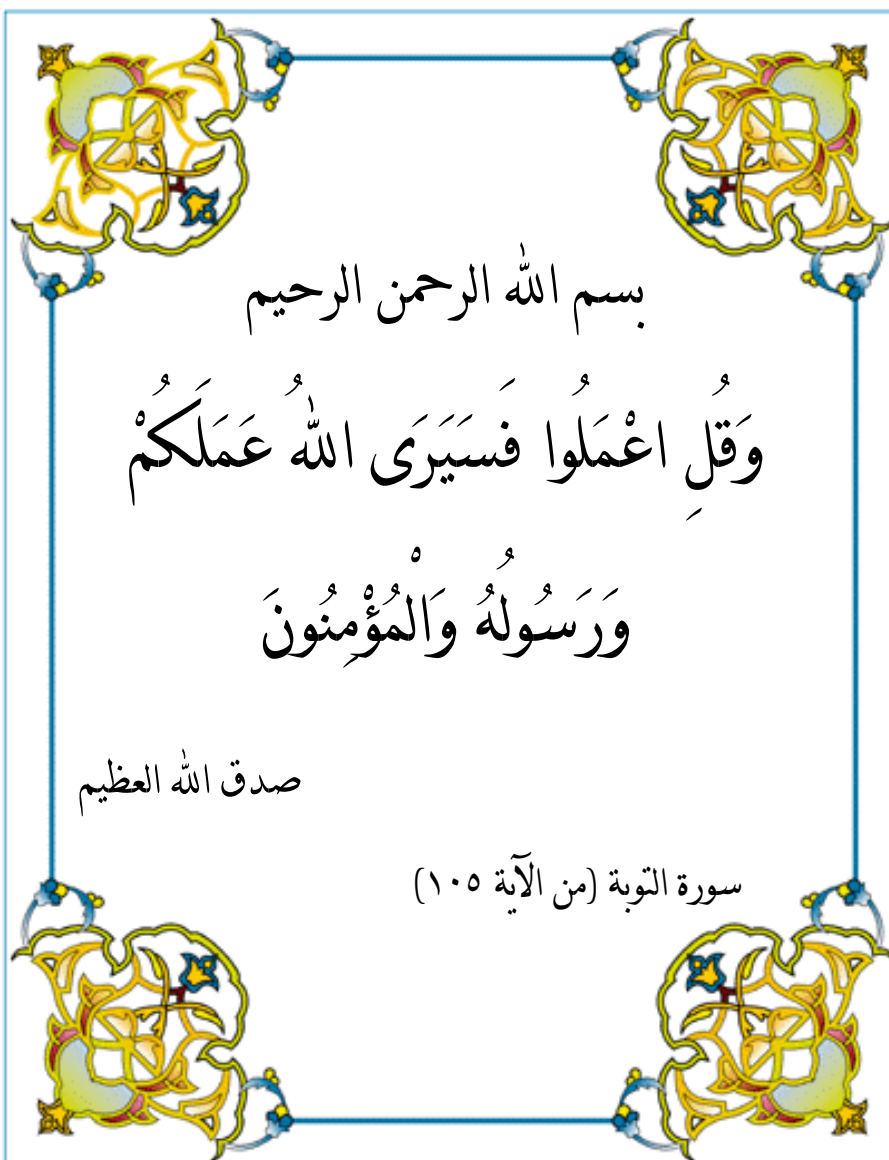 بسم الله الرحمن الرحيم
وَقُلِ اعْمَلُوا فَسَيَرَى اللهُ عَمَلَكُمْ
وَرَسُولُهُ وَالْمُؤْمِنُونَ
صدق الله العظيم
سورة التوبة (من الآية ١٠٥)